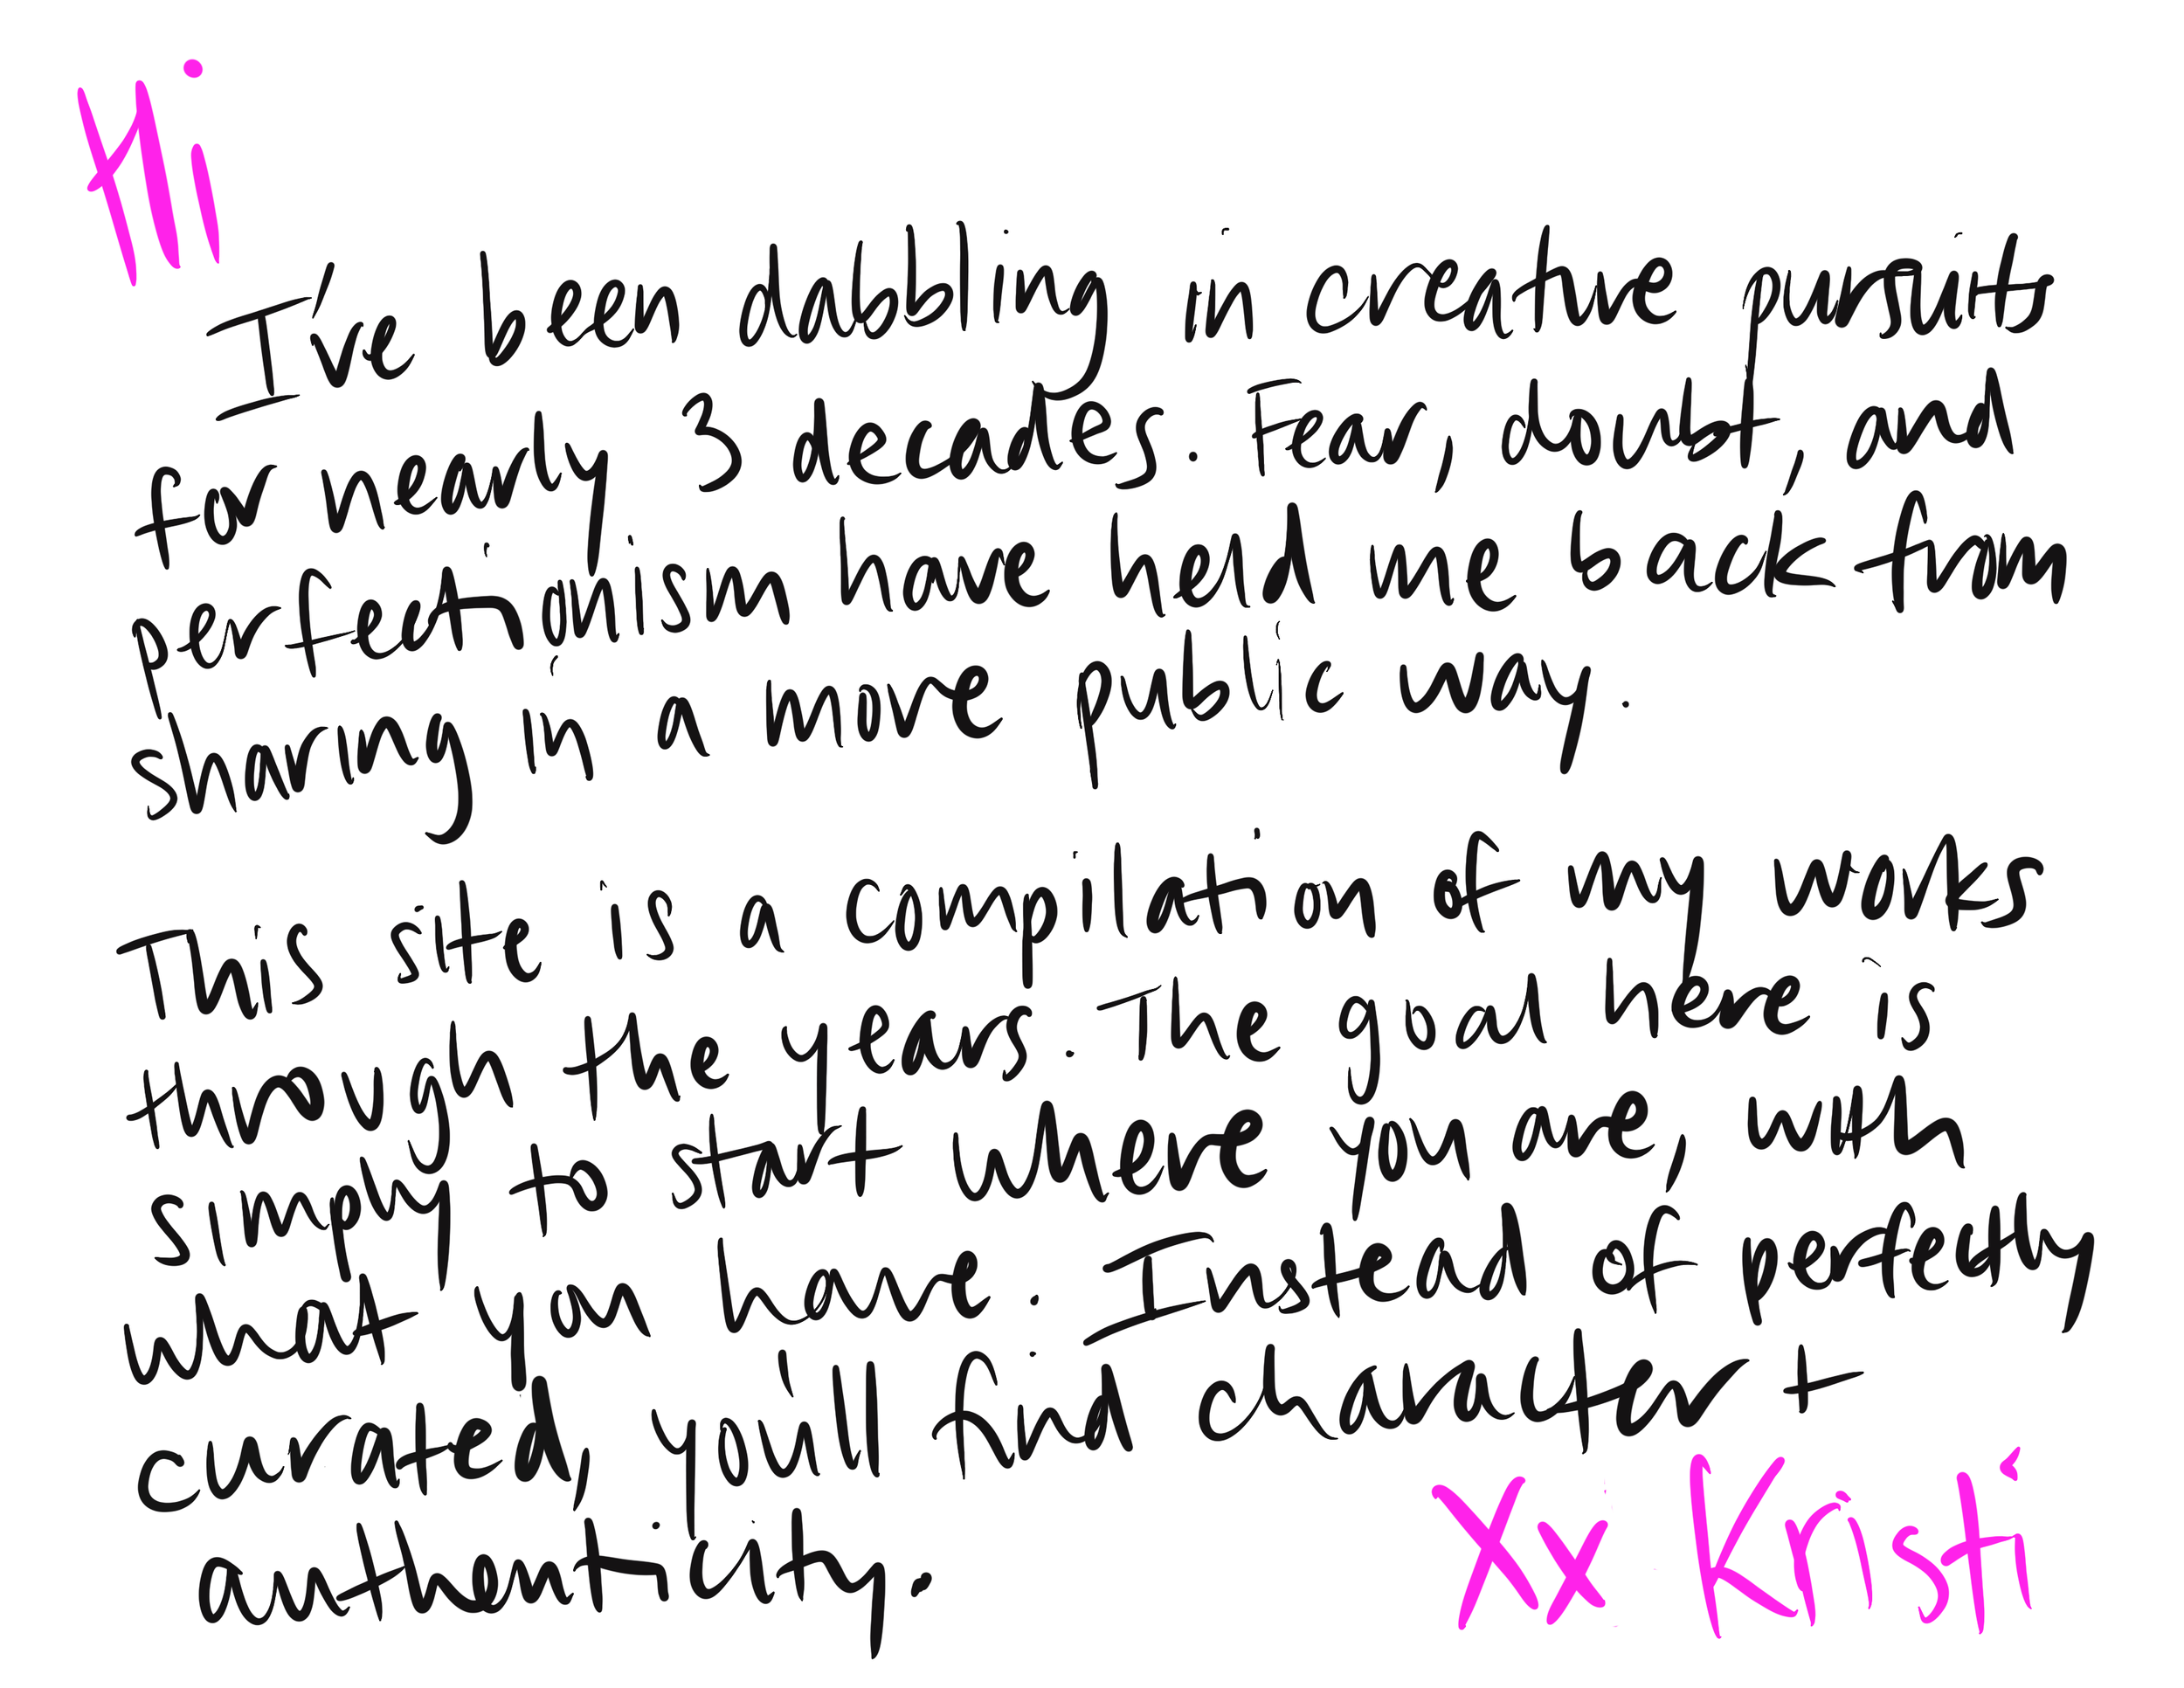 Hi
I've been dabbling in creative pursuits
for nearly 3 decades. Fear, doubt, and
perfectionism have held me back from
sharing in a more public way.
This site is a compilation of my works
through the years. The goal here is
simply to start where you are, with
what you have. Instead of perfectly
curated, you'll find character +
authenticity.
Xx Kristi